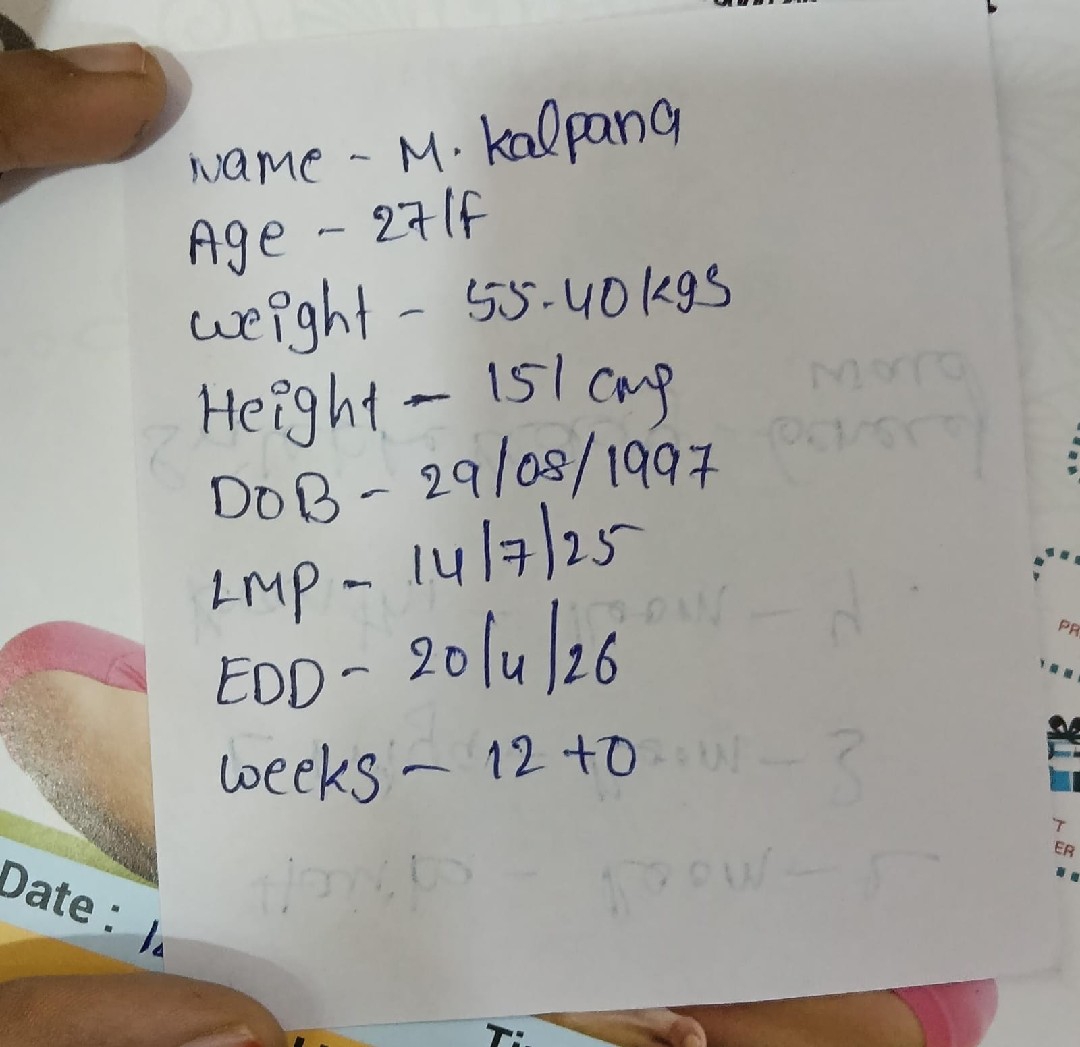 Name - M. Kalpana
Age - 27/F
weight - 55.40 kgs
Height - 151 cms
DOB - 29/08/1997
LMP - 14/7/25
EDD - 20/4/26
weeks - 12 +0
Date :
PR
T
ER